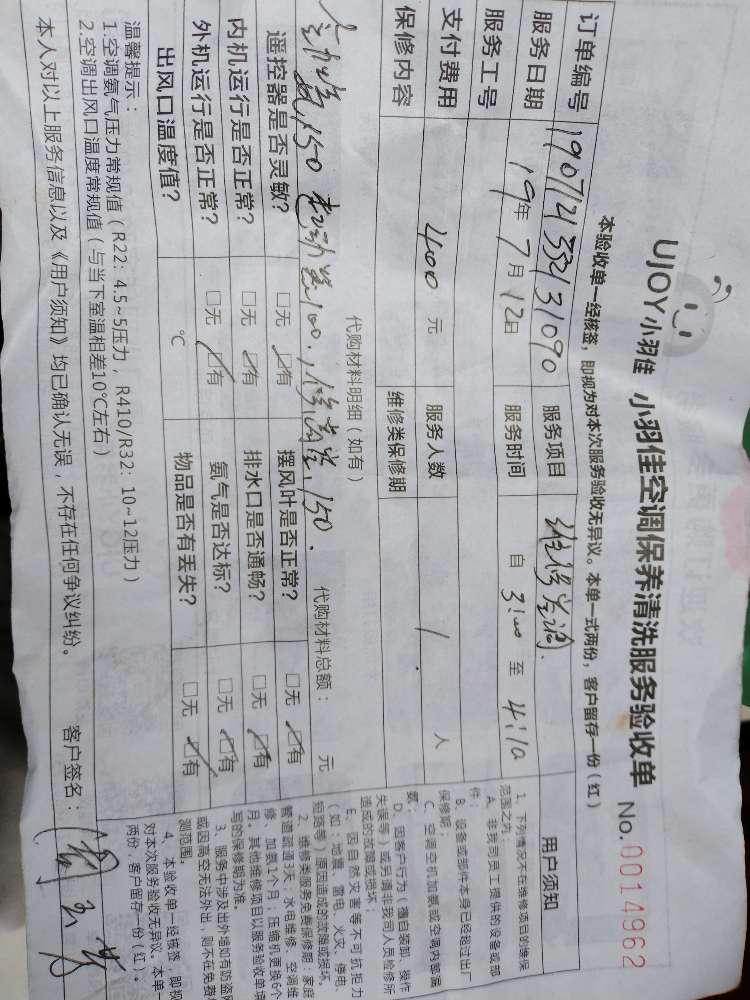 UJOY小羽佳 小羽佳空调保养清洗服务验收单 No.0014962
本验收单一经核签，即视为对本次服务验收无异议。本单一式两份，客户留存一份（红）
订单编号 1907121532131090 服务项目 维修空调
服务日期 19年7月12日 服务时间 自 3:00 至 4:10
服务工号
支付费用 400 元 服务人数 1 人
保修内容 维修类保修期
代购材料明细（如有） 代购材料总额： 元
150 100. 150.
遥控器是否灵敏？ □无 □有 摆风叶是否正常？ □无 □有
内机运行是否正常？ □无 □有 排水口是否通畅？ □无 □有
外机运行是否正常？ □无 □有 氨气是否达标？ □无 □有
出风口温度值？ ℃ 物品是否有丢失？ □无 □有
温馨提示：
1.空调氨气压力常规值（R22：4.5~5压力，R410/R32：10~12压力）
2.空调出风口温度常规值（与当下室温相差10℃左右）
本人对以上服务信息以及《用户须知》均已确认无误，不存在任何争议纠纷。 客户签名：
用户须知
1、下列情况不在维修项目的维保
范围之内：
A、非我司员工提供的设备或部
件；
B、设备或部件本身已经超过出厂
保修期；
C、空调空机加氨或空调内部漏
氨；
D、因客户行为（擅自装卸、操作
失误等）或另请非我司人员检修所
造成的故障或损坏；
E、因自然灾害等不可抗拒力
（如：地震、雷电、火灾、停电、
短路等）原因造成的故障或损坏。
2、维修类服务免费保修期：家庭
管道疏通3天；水电维修、空调维
修、加氨1个月；压缩机更换6个
月。其他维修项目以服务验收单填
写的保修期为准。
3、服务中涉及出外墙如有防盗网
或因高空无法外出，则不在免费
测范围。
4、本验收单一经核签，即视
对本次服务验收无异议。本单一
两份，客户留存一份（红）。